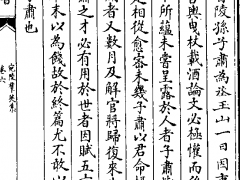 陵孫子肅為丞玉山一日因事
與曳杖載酒論文必極懽而
所蘊未嘗呈露於人者子肅
是相從愈密未幾子肅以君命
者又數月及解官將歸復來
肅之才必有用於世者因賦五
末以為餞故於終篇尤不敢以
肅也
宛陵羣英集
卷六